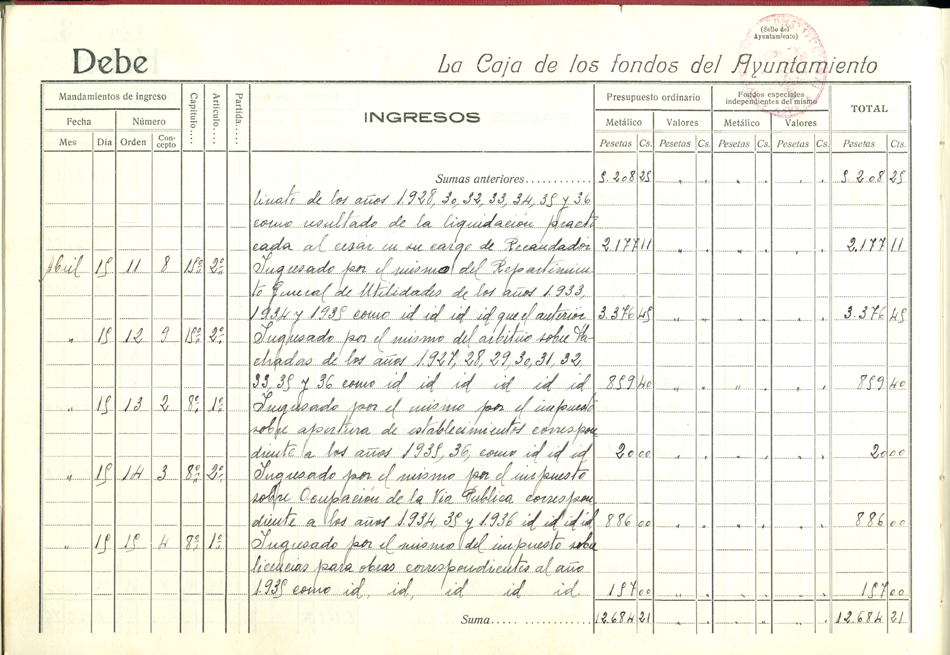 (Sello del Ayuntamiento)
Debe
La Caja de los fondos del Ayuntamiento
Mandamientos de ingreso
Fecha Número
Mes Día Orden Concepto
Capítulo.... Artículo.... Partida....
INGRESOS
Presupuesto ordinario
Fondos especiales independientes del mismo
TOTAL
Metálico Valores Metálico Valores
Pesetas Cs. Pesetas Cs. Pesetas Cs. Pesetas Cs. Pesetas Cts.
Sumas anteriores............ 5.208 25 " " " " " " 5.208 25
linato de los años 1.928, 30, 32, 33, 34, 35 y 36
como resultado de la liquidación practi
cada al cesar en su cargo de Recaudador 2.177 11 " " " " " " 2.177 11
Abril 15 11 8 15º 2º Ingresado por el mismo del Repartimien
to General de Utilidades de los años 1.933,
1934 y 1935 como id id id id que el anterior 3.376 45 " " " " " " 3.376 45
" 15 12 9 15º 2º Ingresado por el mismo del arbitrio sobre Fa-
chadas de los años 1.927, 28, 29, 30, 31, 32,
33, 35 y 36 como id id id id id id 859 40 " " " " " " 859 40
" 15 13 2 8º 1º Ingresado por el mismo por el impuesto
sobre apertura de establecimientos correspon
diente a los años 1935, 36, como id id id 20 00 " " " " " " 20 00
" 15 14 3 8º 2º Ingresado por el mismo por el impuesto
sobre Ocupación de la Via Publica correspon
diente a los años 1.934, 35 y 1.936 id id id id 886 00 " " " " " " 886 00
" 15 15 4 8º 1º Ingresado por el mismo del impuesto sobre
licencias para obras correspondientes al año
1.935 como id, id, id id id 157 00 " " " " " " 157 00
Suma..... ............. 12.684 21 " " " " " " 12.684 21